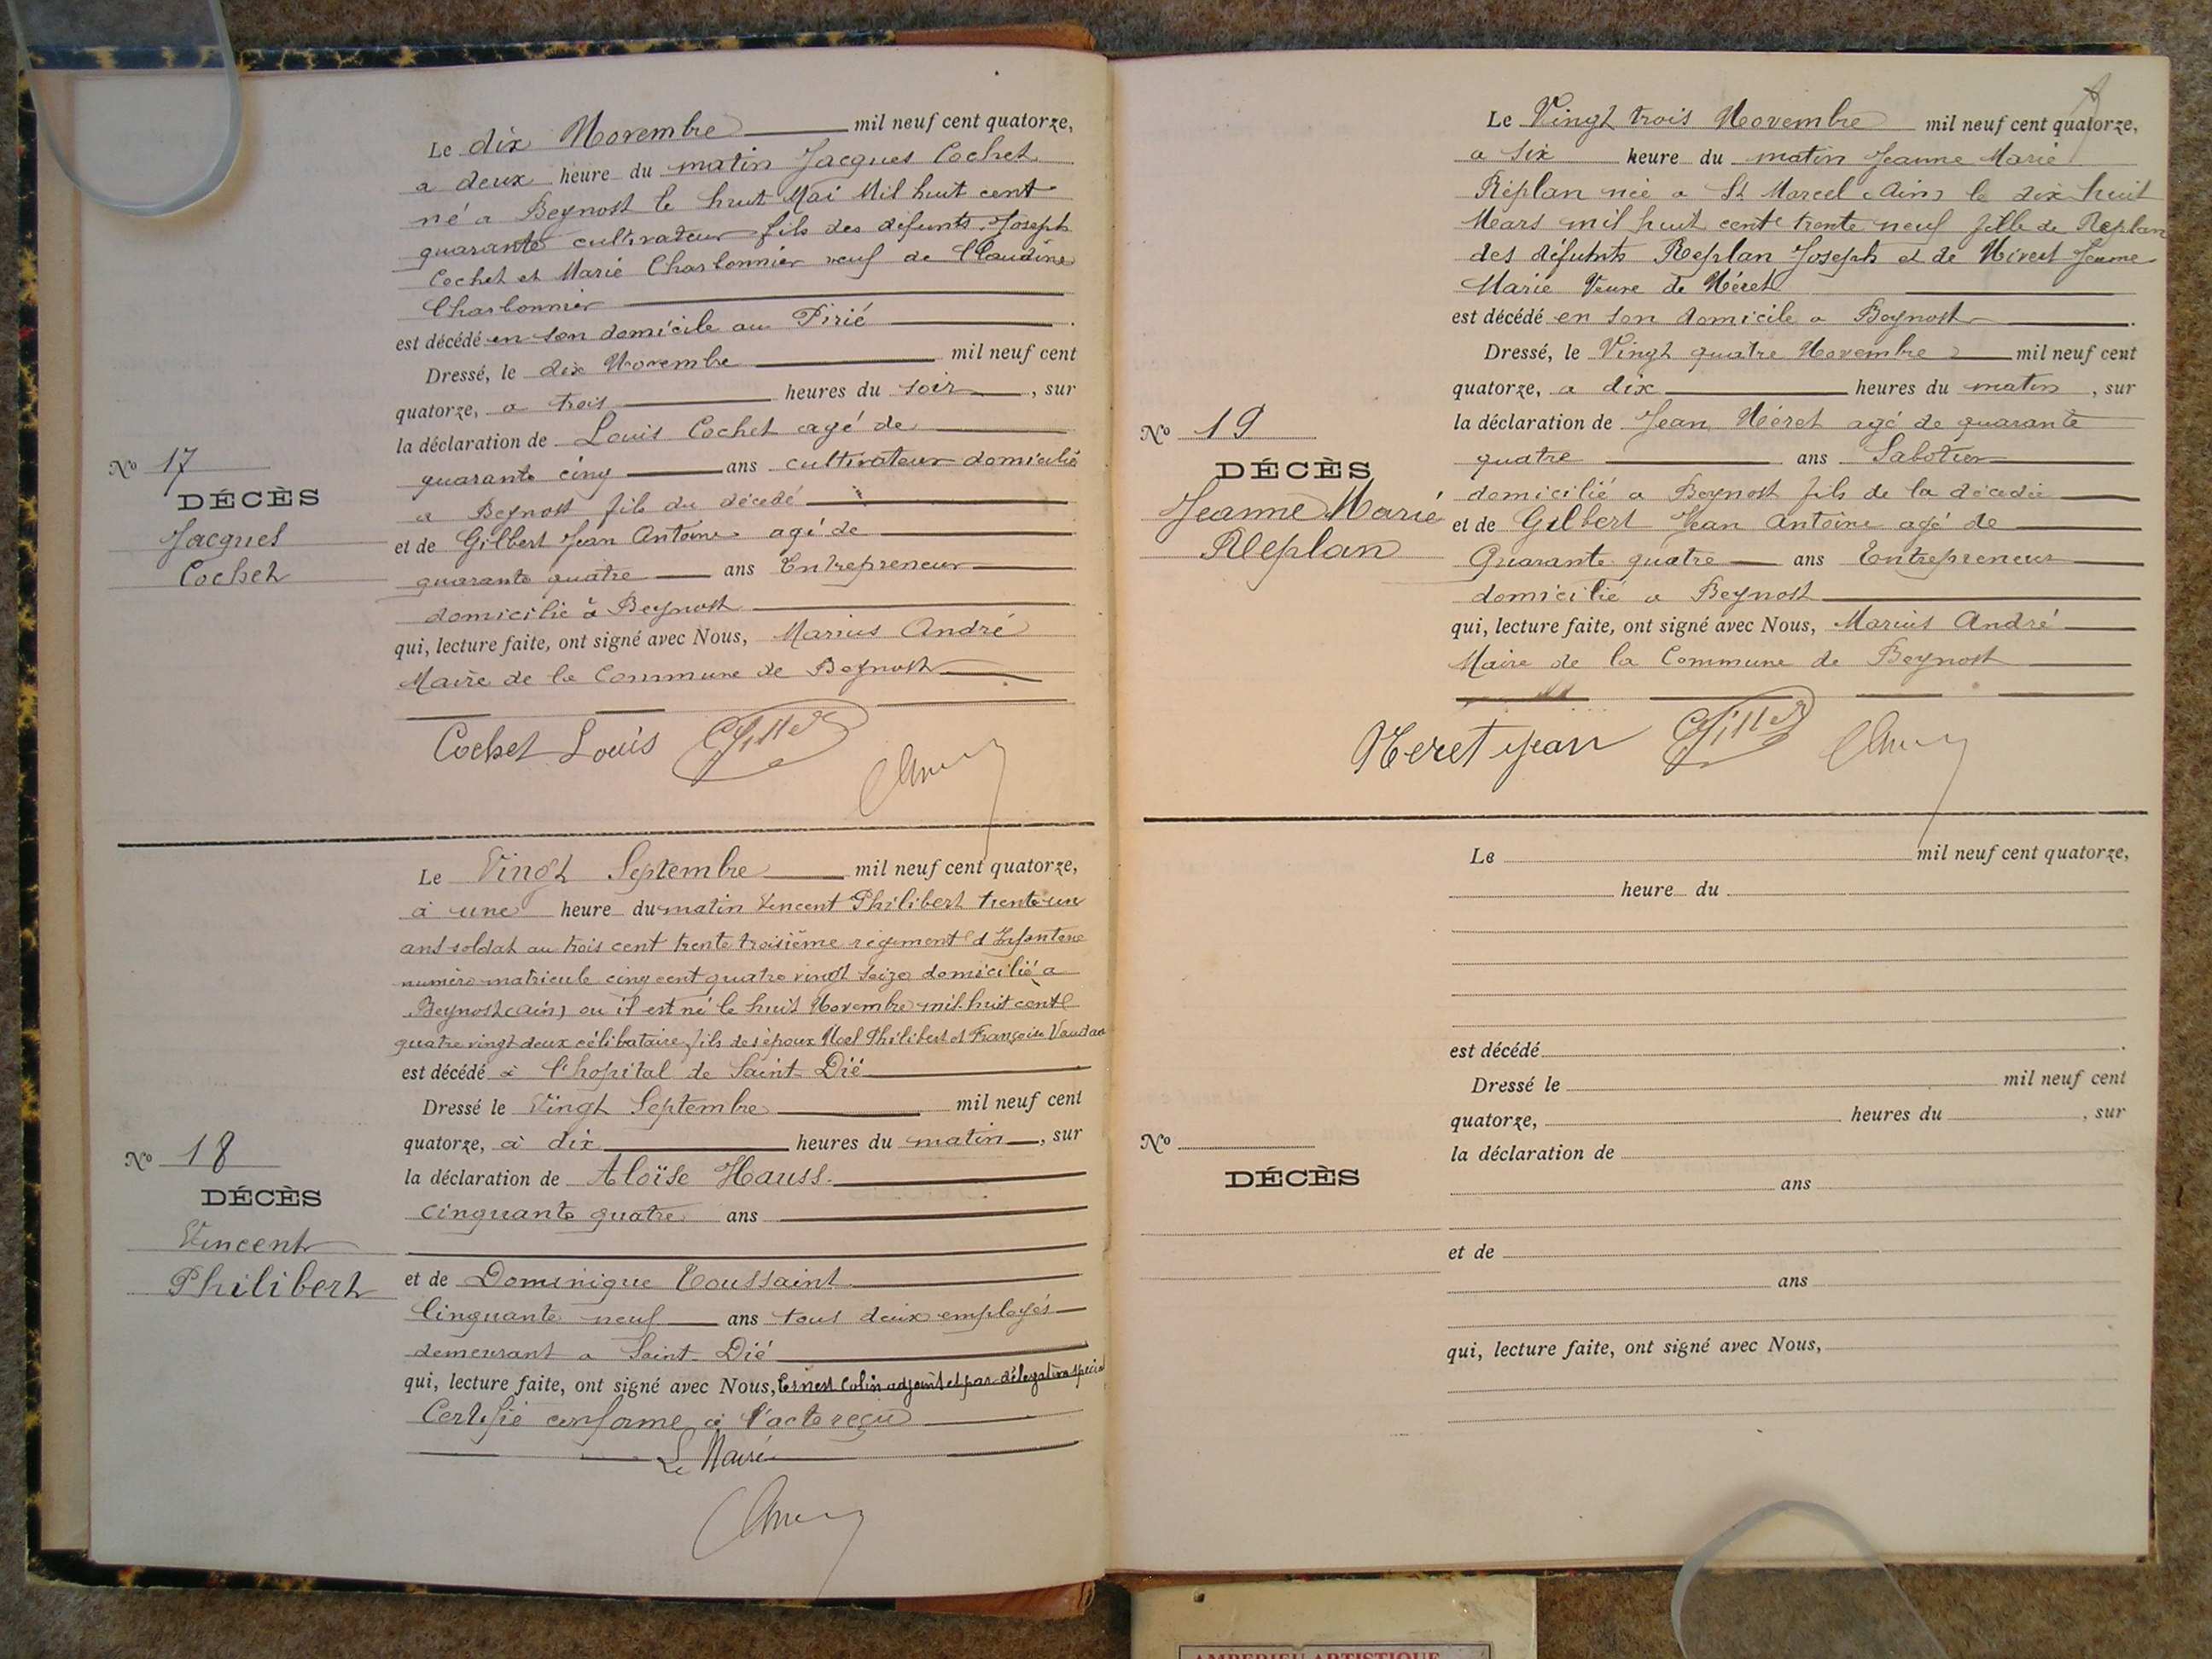 Le dix Novembre mil neuf cent quatorze,
a deux heure du matin Jacques Cochet
né a Beynost le huit Mai Mil huit cent
quarante cultivateur fils des défunts Joseph
Cochet et Marie Charbonnier veuf de Claudine
Charbonnier
est décédé en son domicile au Pirié
Dressé, le dix Novembre mil neuf cent
quatorze, a trois heures du soir, sur
la déclaration de Louis Cochet agé de
quarante cinq ans cultivateur domicilié
a Beynost fils du décedé
et de Gilbert Jean Antoine agé de
quarante quatre ans Entrepreneur
domicilié à Beynost
qui, lecture faite, ont signé avec Nous, Marius André
Maire de la Commune de Beynost
Cochet Louis
No 17
DÉCÈS
Jacques
Cochet
Le Vingt Septembre mil neuf cent quatorze,
à une heure du matin Vincent Philibert trente un
ans soldat au trois cent trente troisième régiment d'Infanterie
numéro matricule cinq cent quatre vingt seize domicilié a
Beynost (ain) ou il est né le huit Novembre mil huit cent
quatre vingt deux célibataire, fils des époux Noel Philibert et Françoise
est décédé à l'hopital de Saint-Dié
Dressé le Vingt Septembre mil neuf cent
quatorze, à dix heures du matin, sur
la déclaration de Aloïse Hauss.
cinquante quatre ans
et de Dominique Toussaint
Cinquante neuf ans tous deux employés
demeurant a Saint-Dié
qui, lecture faite, ont signé avec Nous, Ernest Colin adjoint et par délégation
Certifié conforme à l'acte reçu
Le Maire
No 18
DÉCÈS
Vincent
Philibert
Le Vingt trois Novembre mil neuf cent quatorze,
a six heure du matin Jeanne Marie
Réplan née a St Marcel (Ain) le dix huit
Mars mil huit cent trente neuf fille de Replan
des défunts Replan Joseph et de Jeanne
Marie Veuve de Néret
est décédé en son domicile a Beynost
Dressé, le Vingt quatre Novembre mil neuf cent
quatorze, a dix heures du matin, sur
la déclaration de Jean Néret agé de quarante
quatre ans Sabotier
domicilié a Beynost fils de la décedée
et de Gilbert Jean Antoine agé de
Quarante quatre ans Entrepreneur
domicilié a Beynost
qui, lecture faite, ont signé avec Nous, Marius André
Maire de la Commune de Beynost
Neret jean
No 19
DÉCÈS
Jeanne Marie
Replan
Le mil neuf cent quatorze,
heure du
est décédé
Dressé le mil neuf cent
quatorze, heures du , sur
la déclaration de
ans
et de
ans
qui, lecture faite, ont signé avec Nous,
No
DÉCÈS
AMBERIEU ARTISTIQUE